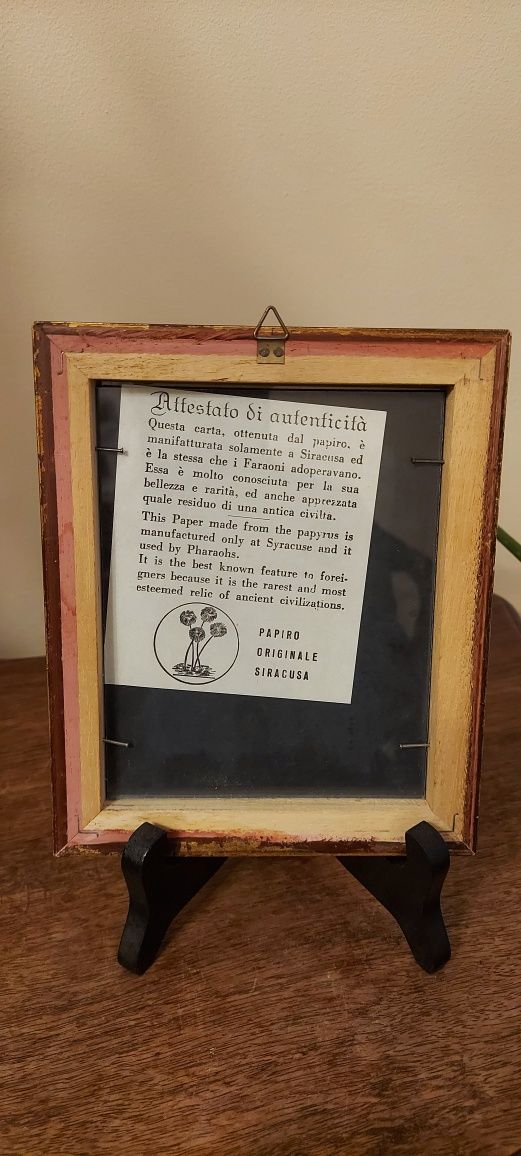 Attestato di autenticità
Questa carta, ottenuta dal papiro, è
manifatturata solamente a Siracusa ed
è la stessa che i Faraoni adoperavano.
Essa è molto conosciuta per la sua
bellezza e rarità, ed anche apprezzata
quale residuo di una antica civilta.
This Paper made from the papyrus is
manufactured only at Syracuse and it
used by Pharaohs.
It is the best known feature to forei-
gners because it is the rarest and most
esteemed relic of ancient civilizations.
PAPIRO
ORIGINALE
SIRACUSA